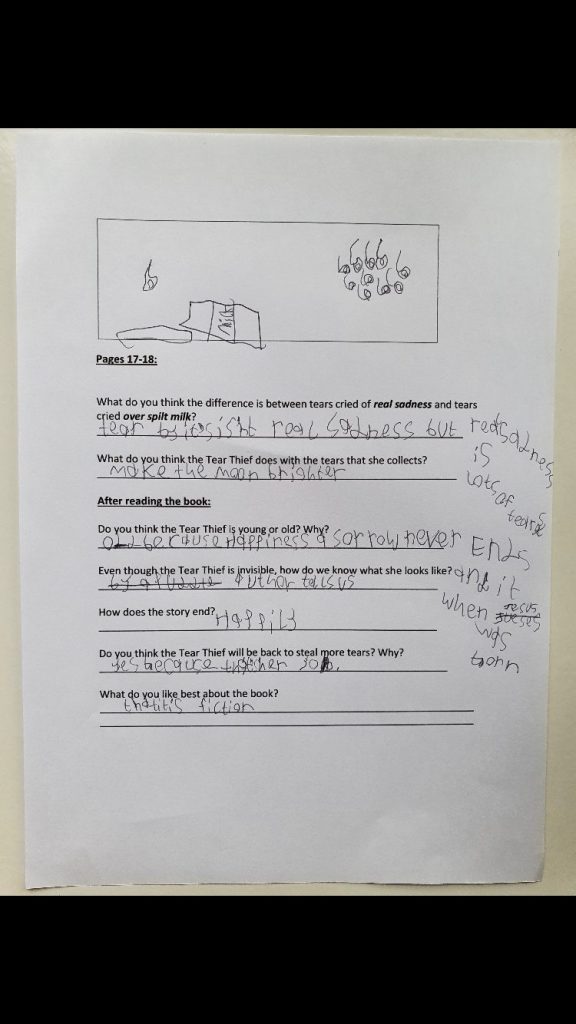 milk
Pages 17-18:
What do you think the difference is between tears cried of real sadness and tears
cried over spilt milk?
isint real sadness but real sadness
is
lots
of
tears
What do you think the Tear Thief does with the tears that she collects?
make the moon brighter
After reading the book:
Do you think the Tear Thief is young or old? Why?
old because Happiness & sorrow never Ends
and it
when
was
Even though the Tear Thief is invisible, how do we know what she looks like?
Author tells us
How does the story end?
Happily
Do you think the Tear Thief will be back to steal more tears? Why?
yes because her job.
What do you like best about the book?
that it is fiction